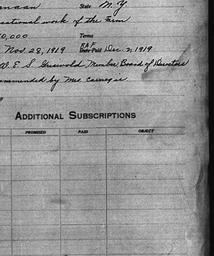 naan State N.Y
cational work of the Farm
0,000 Terms
Nov 28, 1919 Date Paid Dec 2, 1919
W. E. S. Griswold Member Board of Directors
commended by Mrs Carnegie
ADDITIONAL SUBSCRIPTIONS
PROMISED PAID OBJECT